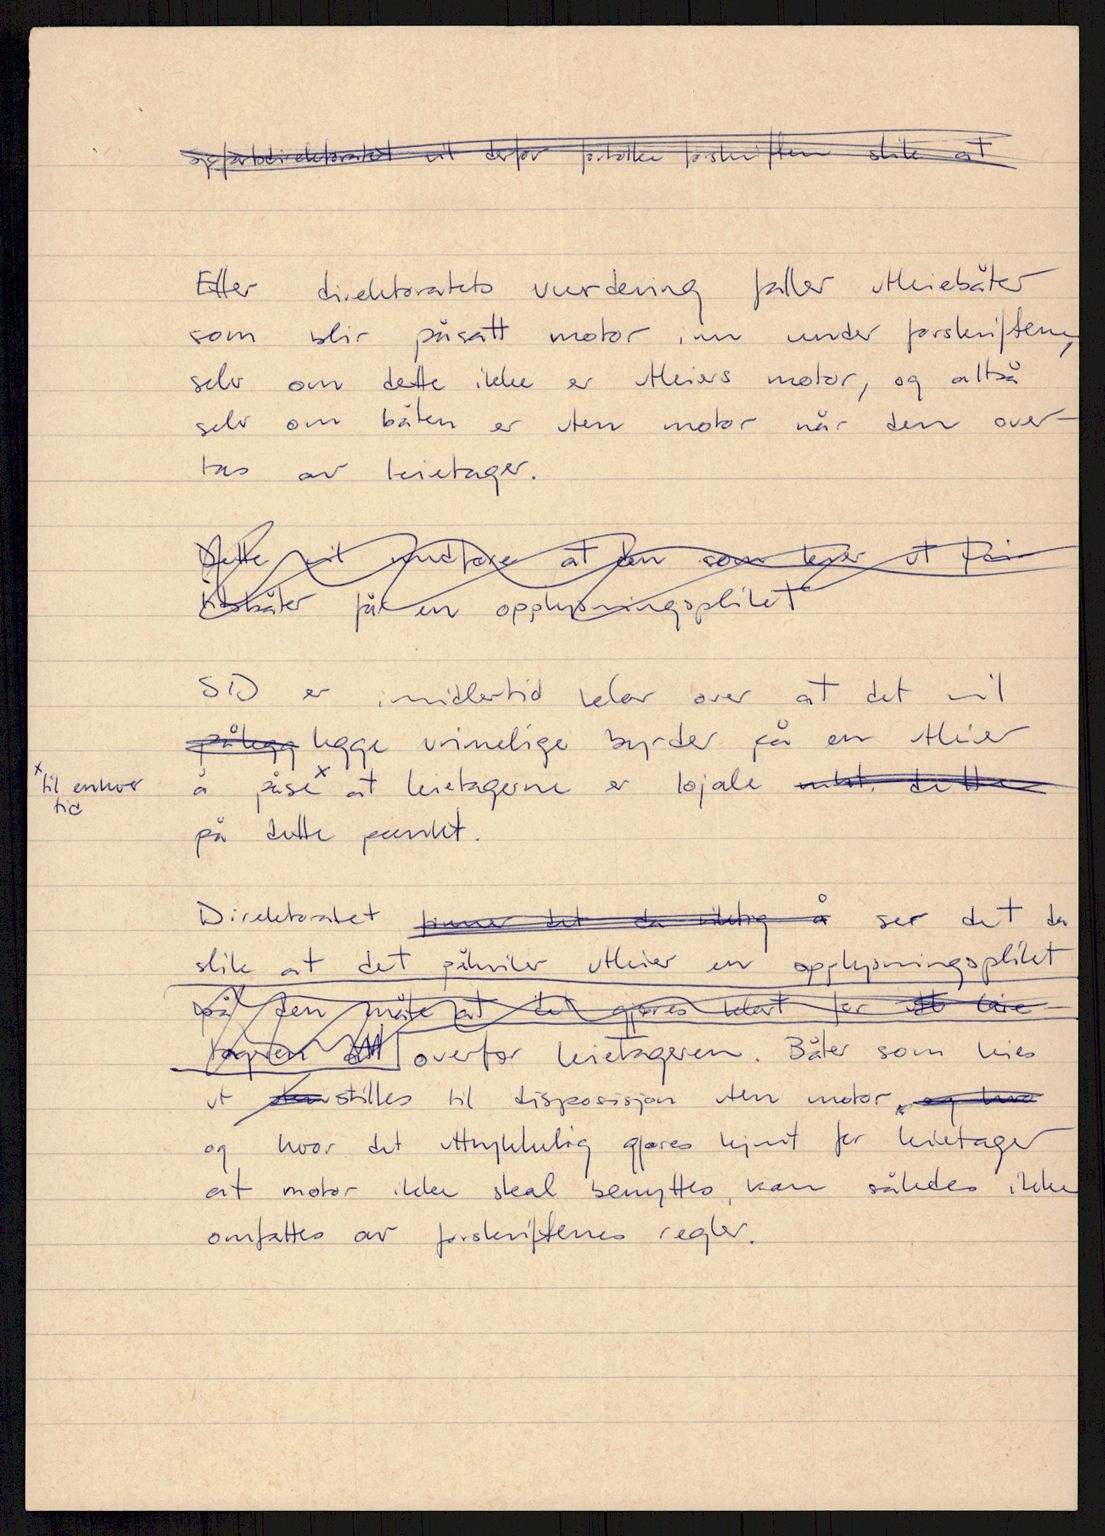 vil derfor fortolke forskriften slik at
Etter direktoratets vurdering faller utleiebåter
som blir påsatt motor inn under forskriftene,
selv om dette ikke er utleiers motor, og altså
selv om båten er uten motor når den over-
tas av leietager.
Dette vil medføre at den som leier ut fri-
tidsbåter får en opplysningsplikt
SD er imidlertid klar over at det vil
pålegg legge urimelige byrder på en utleier
x til enhver
tid
å påse x at leietagerne er lojale mht. dette
på dette punkt.
Direktoratet finner det da riktig å ser det da
slik at det påhviler utleier en opplysningsplikt
på den måte at det gjøres klart for leie-
tageren att overfor leietageren. Båter som leies
ut stilles til disposisjon uten motor, og hvor
og hvor det uttrykkelig gjøres kjent for leietager
at motor ikke skal benyttes, kan således ikke
omfattes av forskriftenes regler.